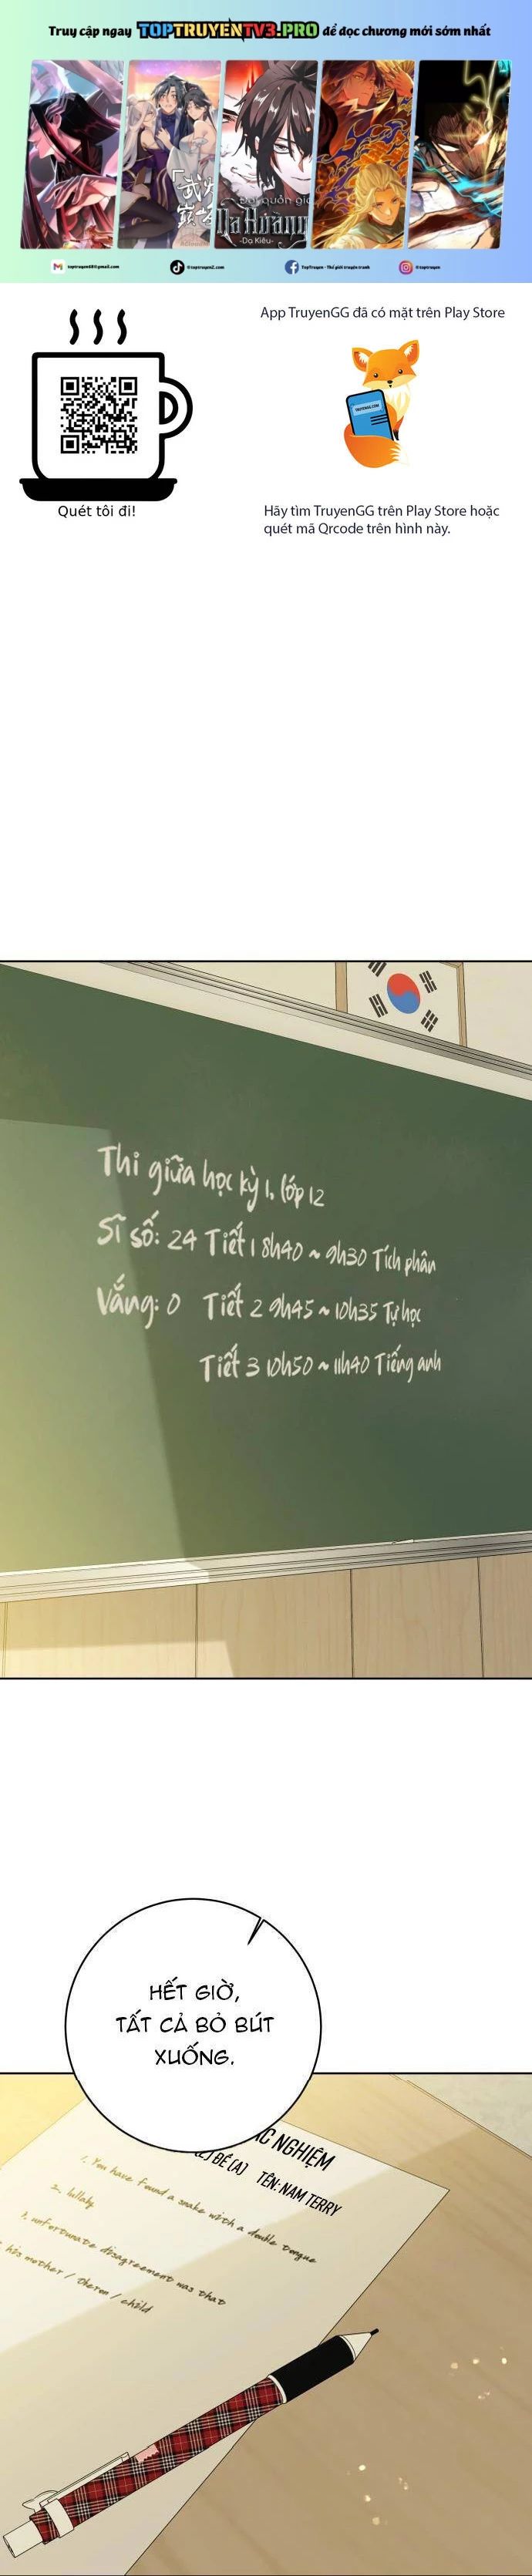 Truy cập ngay TOPTRUYENTV3.PRO để đọc chương mới sớm nhất
Đại quản gia
Ma Hoàng
-Dạ Kiêu-
@toptruyen2.com
TopTruyen - Thế giới truyện tranh
@toptruyen
App TruyenGG đã có mặt trên Play Store
TRUYENGG.COM
Quét tôi đi!
Hãy tìm TruyenGG trên Play Store hoặc
quét mã Qrcode trên hình này.
Thi giữa học kỳ 1, lớp 12
Sĩ số: 24 Tiết 1 8h40 ~ 9h30 Tích phân
Vắng: 0 Tiết 2 9h45 ~ 10h35 Tự học
Tiết 3 10h50 ~ 11h40 Tiếng anh
HẾT GIỜ,
TẤT CẢ BỎ BÚT
XUỐNG.
C NGHIỆM
) ĐỀ (A) TÊN: NAM TERRY
1. You have found a snake with a double tongue
2. lullaby
3. unfortunate disagreement was that
his mother / theron / child